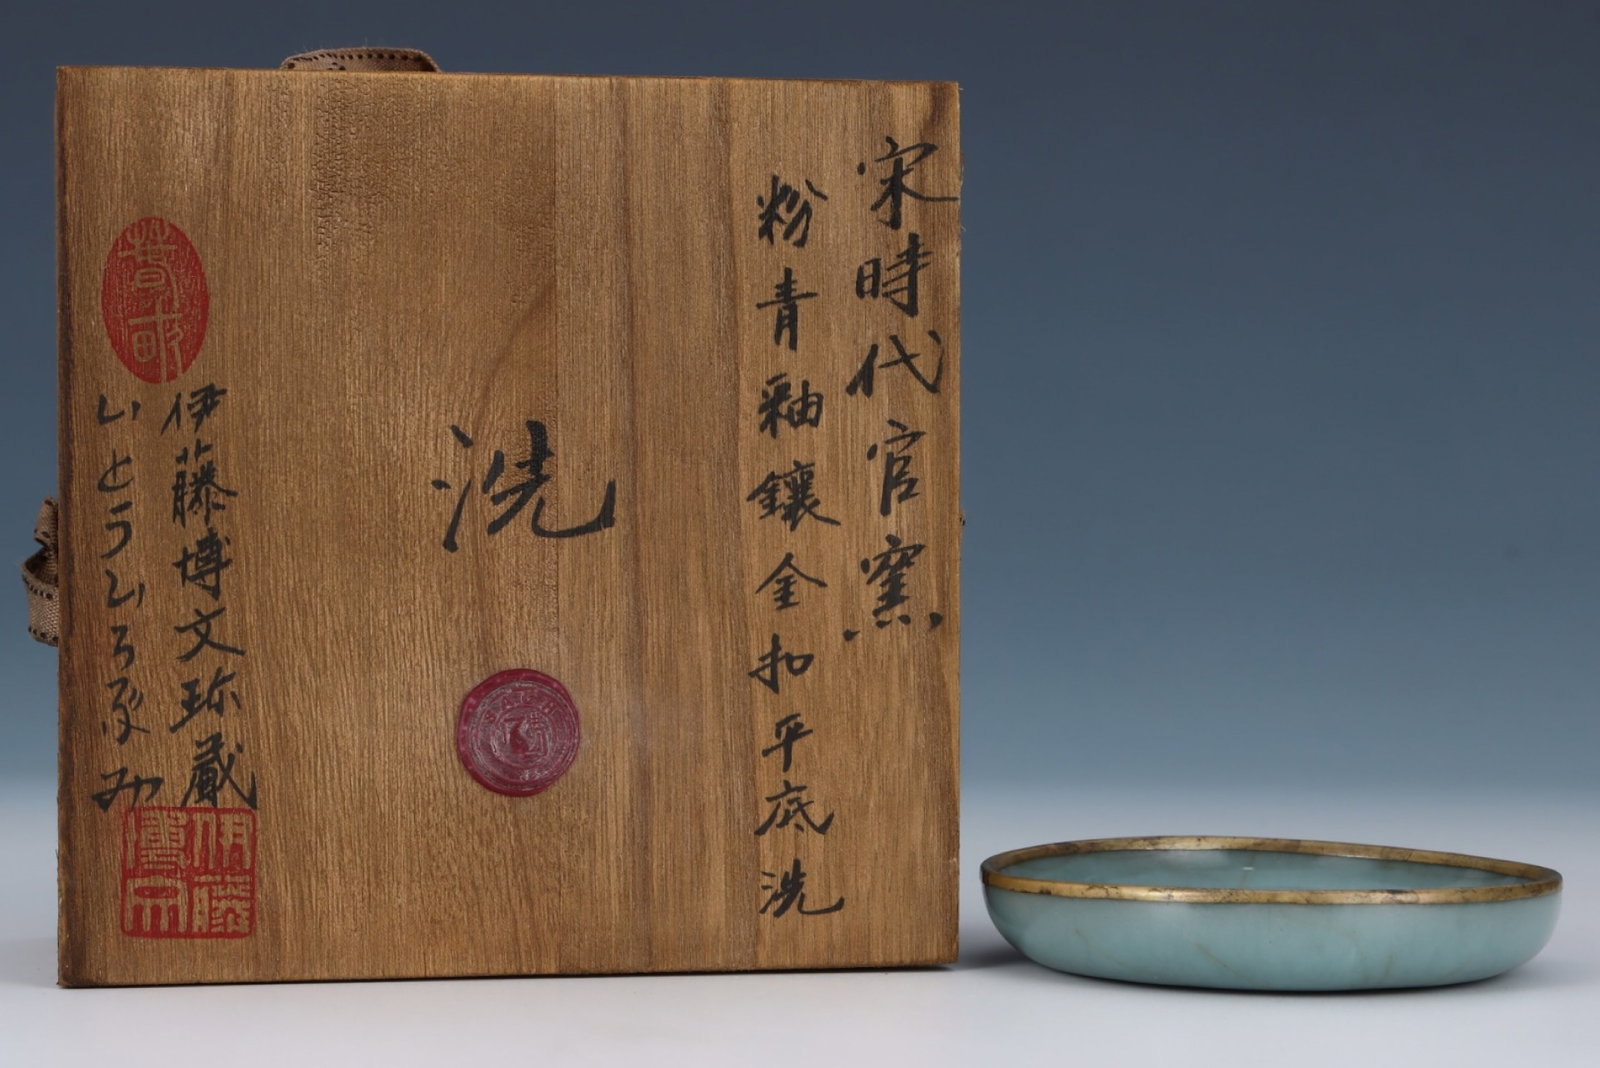 宋時代官窯
粉青釉鑲金扣平底洗
洗
伊藤博文珎藏
いとう
春畝
伊藤
博